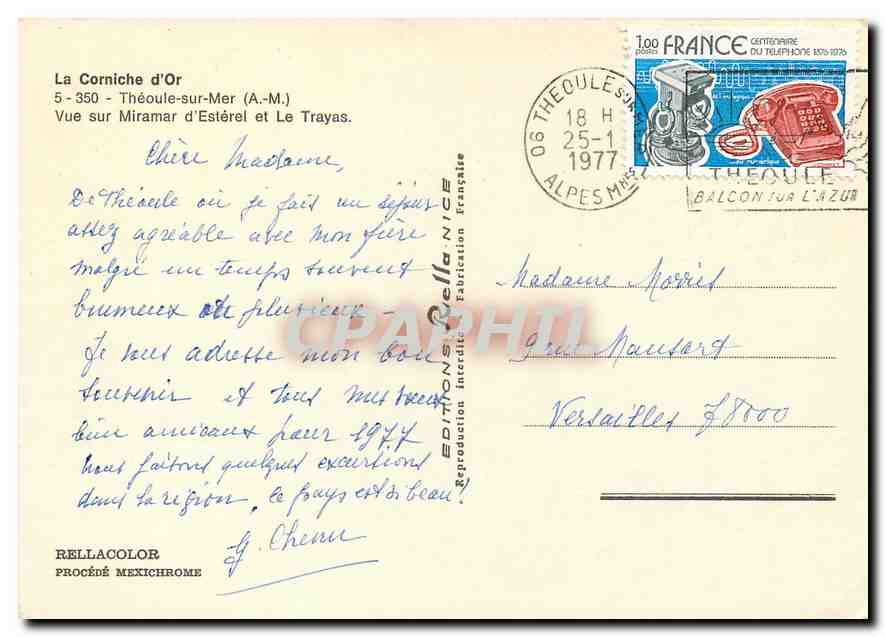 La Corniche d'Or
5 - 350 - Théoule-sur-Mer (A.-M.)
Vue sur Miramar d'Estérel et Le Trayas.
Chère Madame,
De Théoule où je fais un séjour
assez agréable avec mon frère
malgré un temps souvent
brumeux et pluvieux -
Je vous adresse mon bon
souvenir et tous mes vœux
bien amicaux pour 1977
Nous faisons quelques excursions
dans la région, le pays est si beau!
RELLACOLOR
PROCÉDÉ MEXICHROME
EDITIONS Rella - NICE
Reproduction interdite Fabrication Française
CPAPHIL
1,00 FRANCE
postes
CENTENAIRE
DU TELEPHONE 1876-1976
06 THEOULE SUR
18 H
25-1
1977
ALPES Mmes
THEOULE
BALCON SUR L'AZUR
Madame
9 rue Mansart
Versailles 78000